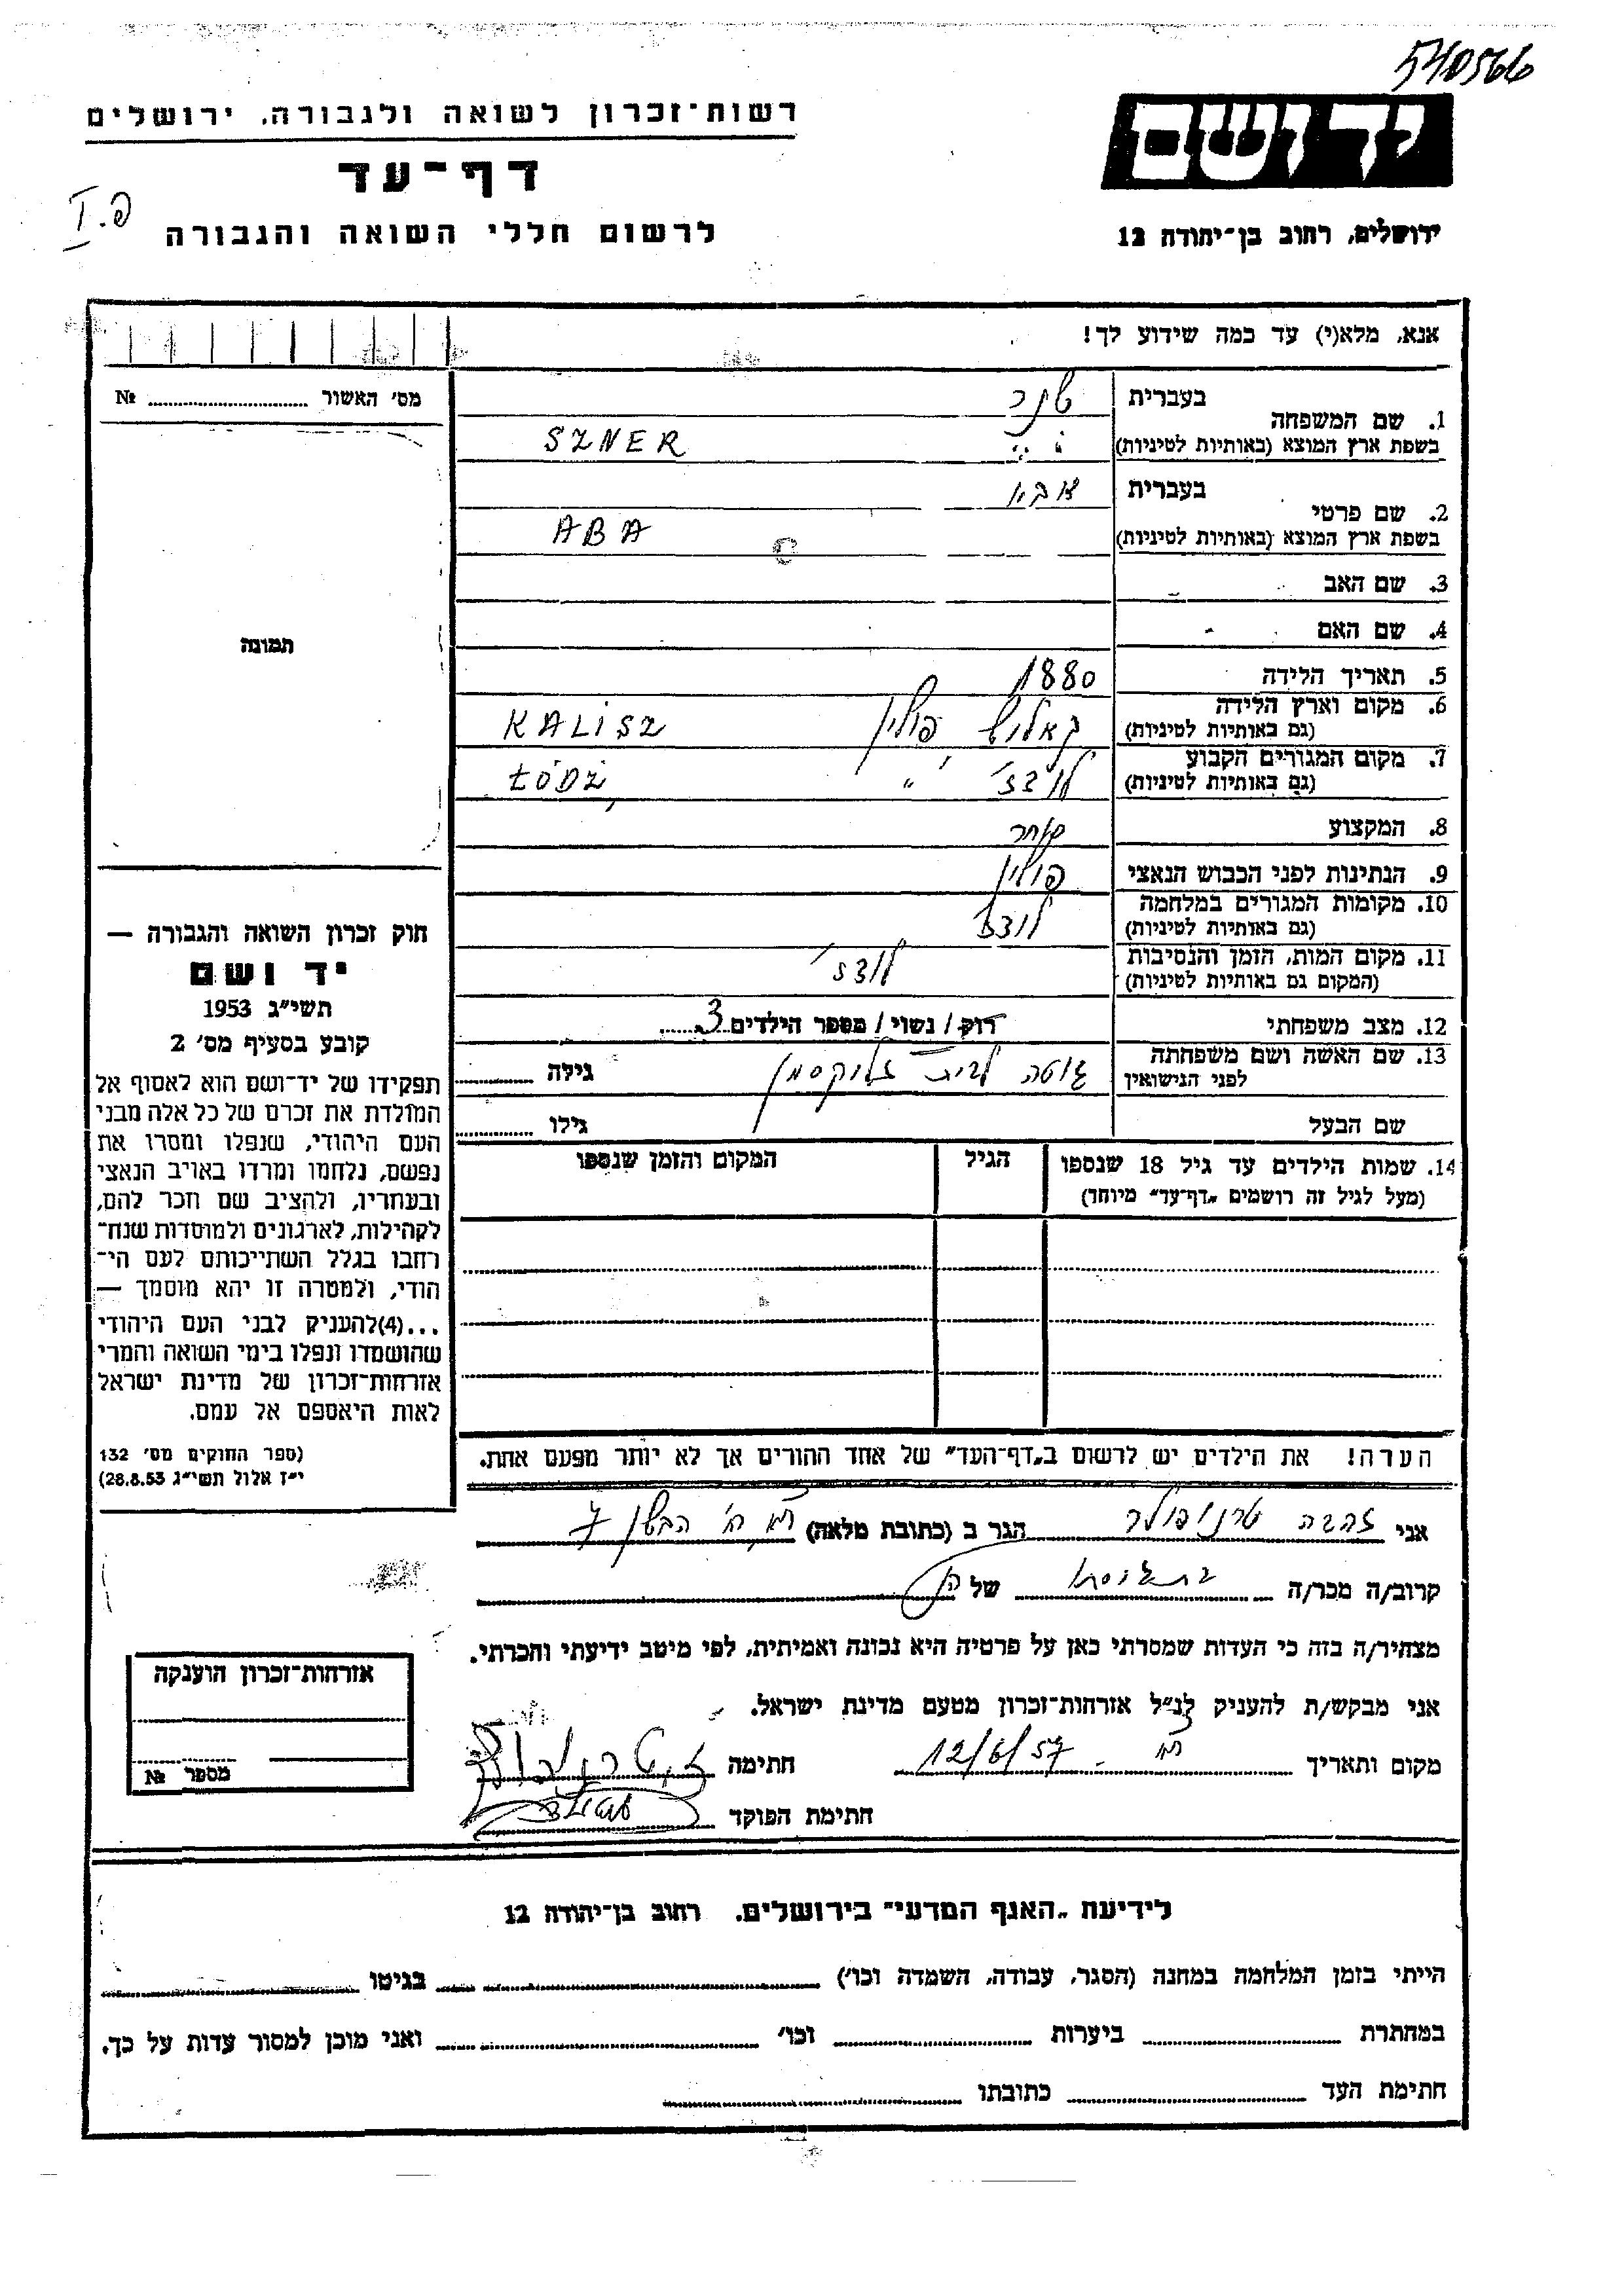 540566
יד ושם
רשות־זכרון לשואה ולגבורה, ירושלים
דף־עד
פ.I
לרשום חללי השואה והגבורה
ירושלים, רחוב בן־יהודה 12
אנא, מלא(י) עד כמה שידוע לך!
מס׳ האשור № 
1. שם המשפחה
בעברית
שנר
בשפת ארץ המוצא (באותיות לטיניות)
SZNER
2. שם פרטי
בעברית
אבא
בשפת ארץ המוצא (באותיות לטיניות)
ABA
3. שם האב
4. שם האם
תמונה
5. תאריך הלידה
1880
6. מקום וארץ הלידה
(גם באותיות לטיניות)
קאליש פולין KALISZ
7. מקום המגורים הקבוע
(גם באותיות לטיניות)
לודז׳ " ŁÓDŹ
8. המקצוע
סוחר
9. הנתינות לפני הכבוש הנאצי
פולין
10. מקומות המגורים במלחמה
(גם באותיות לטיניות)
לודז׳
11. מקום המות, הזמן והנסיבות
(המקום גם באותיות לטיניות)
לודז׳
12. מצב משפחתי
רוק / נשוי / מספר הילדים 3
13. שם האשה ושם משפחתה
לפני הנישואין
גוטה לבית גליקסמן
גילה
שם הבעל
גילו
14. שמות הילדים עד גיל 18 שנספו
(מעל לגיל זה רושמים „דף־עד״ מיוחד)
הגיל
המקום והזמן שנספו
חוק זכרון השואה והגבורה —
יד ושם
תשי״ג 1953
קובע בסעיף מס׳ 2
תפקידו של יד־ושם הוא לאסוף אל
המולדת את זכרם של כל אלה מבני
העם היהודי, שנפלו ומסרו את
נפשם, נלחמו ומרדו באויב הנאצי
ובעוזריו, ולהציב שם וזכר להם,
לקהילות, לארגונים ולמוסדות שנח־
רבו בגלל השתייכותם לעם הי־
הודי, ולמטרה זו יהא מוסמך —
...(4) להעניק לבני העם היהודי
שהושמדו ונפלו בימי השואה והמרי
אזרחות־זכרון של מדינת ישראל
לאות היאספם אל עמם.
(ספר החוקים מס׳ 132
י״ז אלול תשי״ג 28.8.53)
הערה! את הילדים יש לרשום ב„דף־העד״ של אחד ההורים אך לא יותר מפעם אחת.
אני זהבה טרנופולר הגר ב (כתובת מלאה)
קרוב/ה מכר/ה של
מצהיר/ה בזה כי העדות שמסרתי כאן על פרטיה היא נכונה ואמיתית, לפי מיטב ידיעתי והכרתי.
אני מבקש/ת להעניק לנ״ל אזרחות־זכרון מטעם מדינת ישראל.
מקום ותאריך 12/6/57 חתימה
חתימת הפוקד
אזרחות־זכרון הוענקה
מספר №
לידיעת „האגף המדעי״ בירושלים, רחוב בן־יהודה 12
הייתי בזמן המלחמה במחנה (הסגר, עבודה, השמדה וכו׳) בגיטו
במחתרת ביערות וכו׳ ואני מוכן למסור עדות על כך.
חתימת העד כתובתו